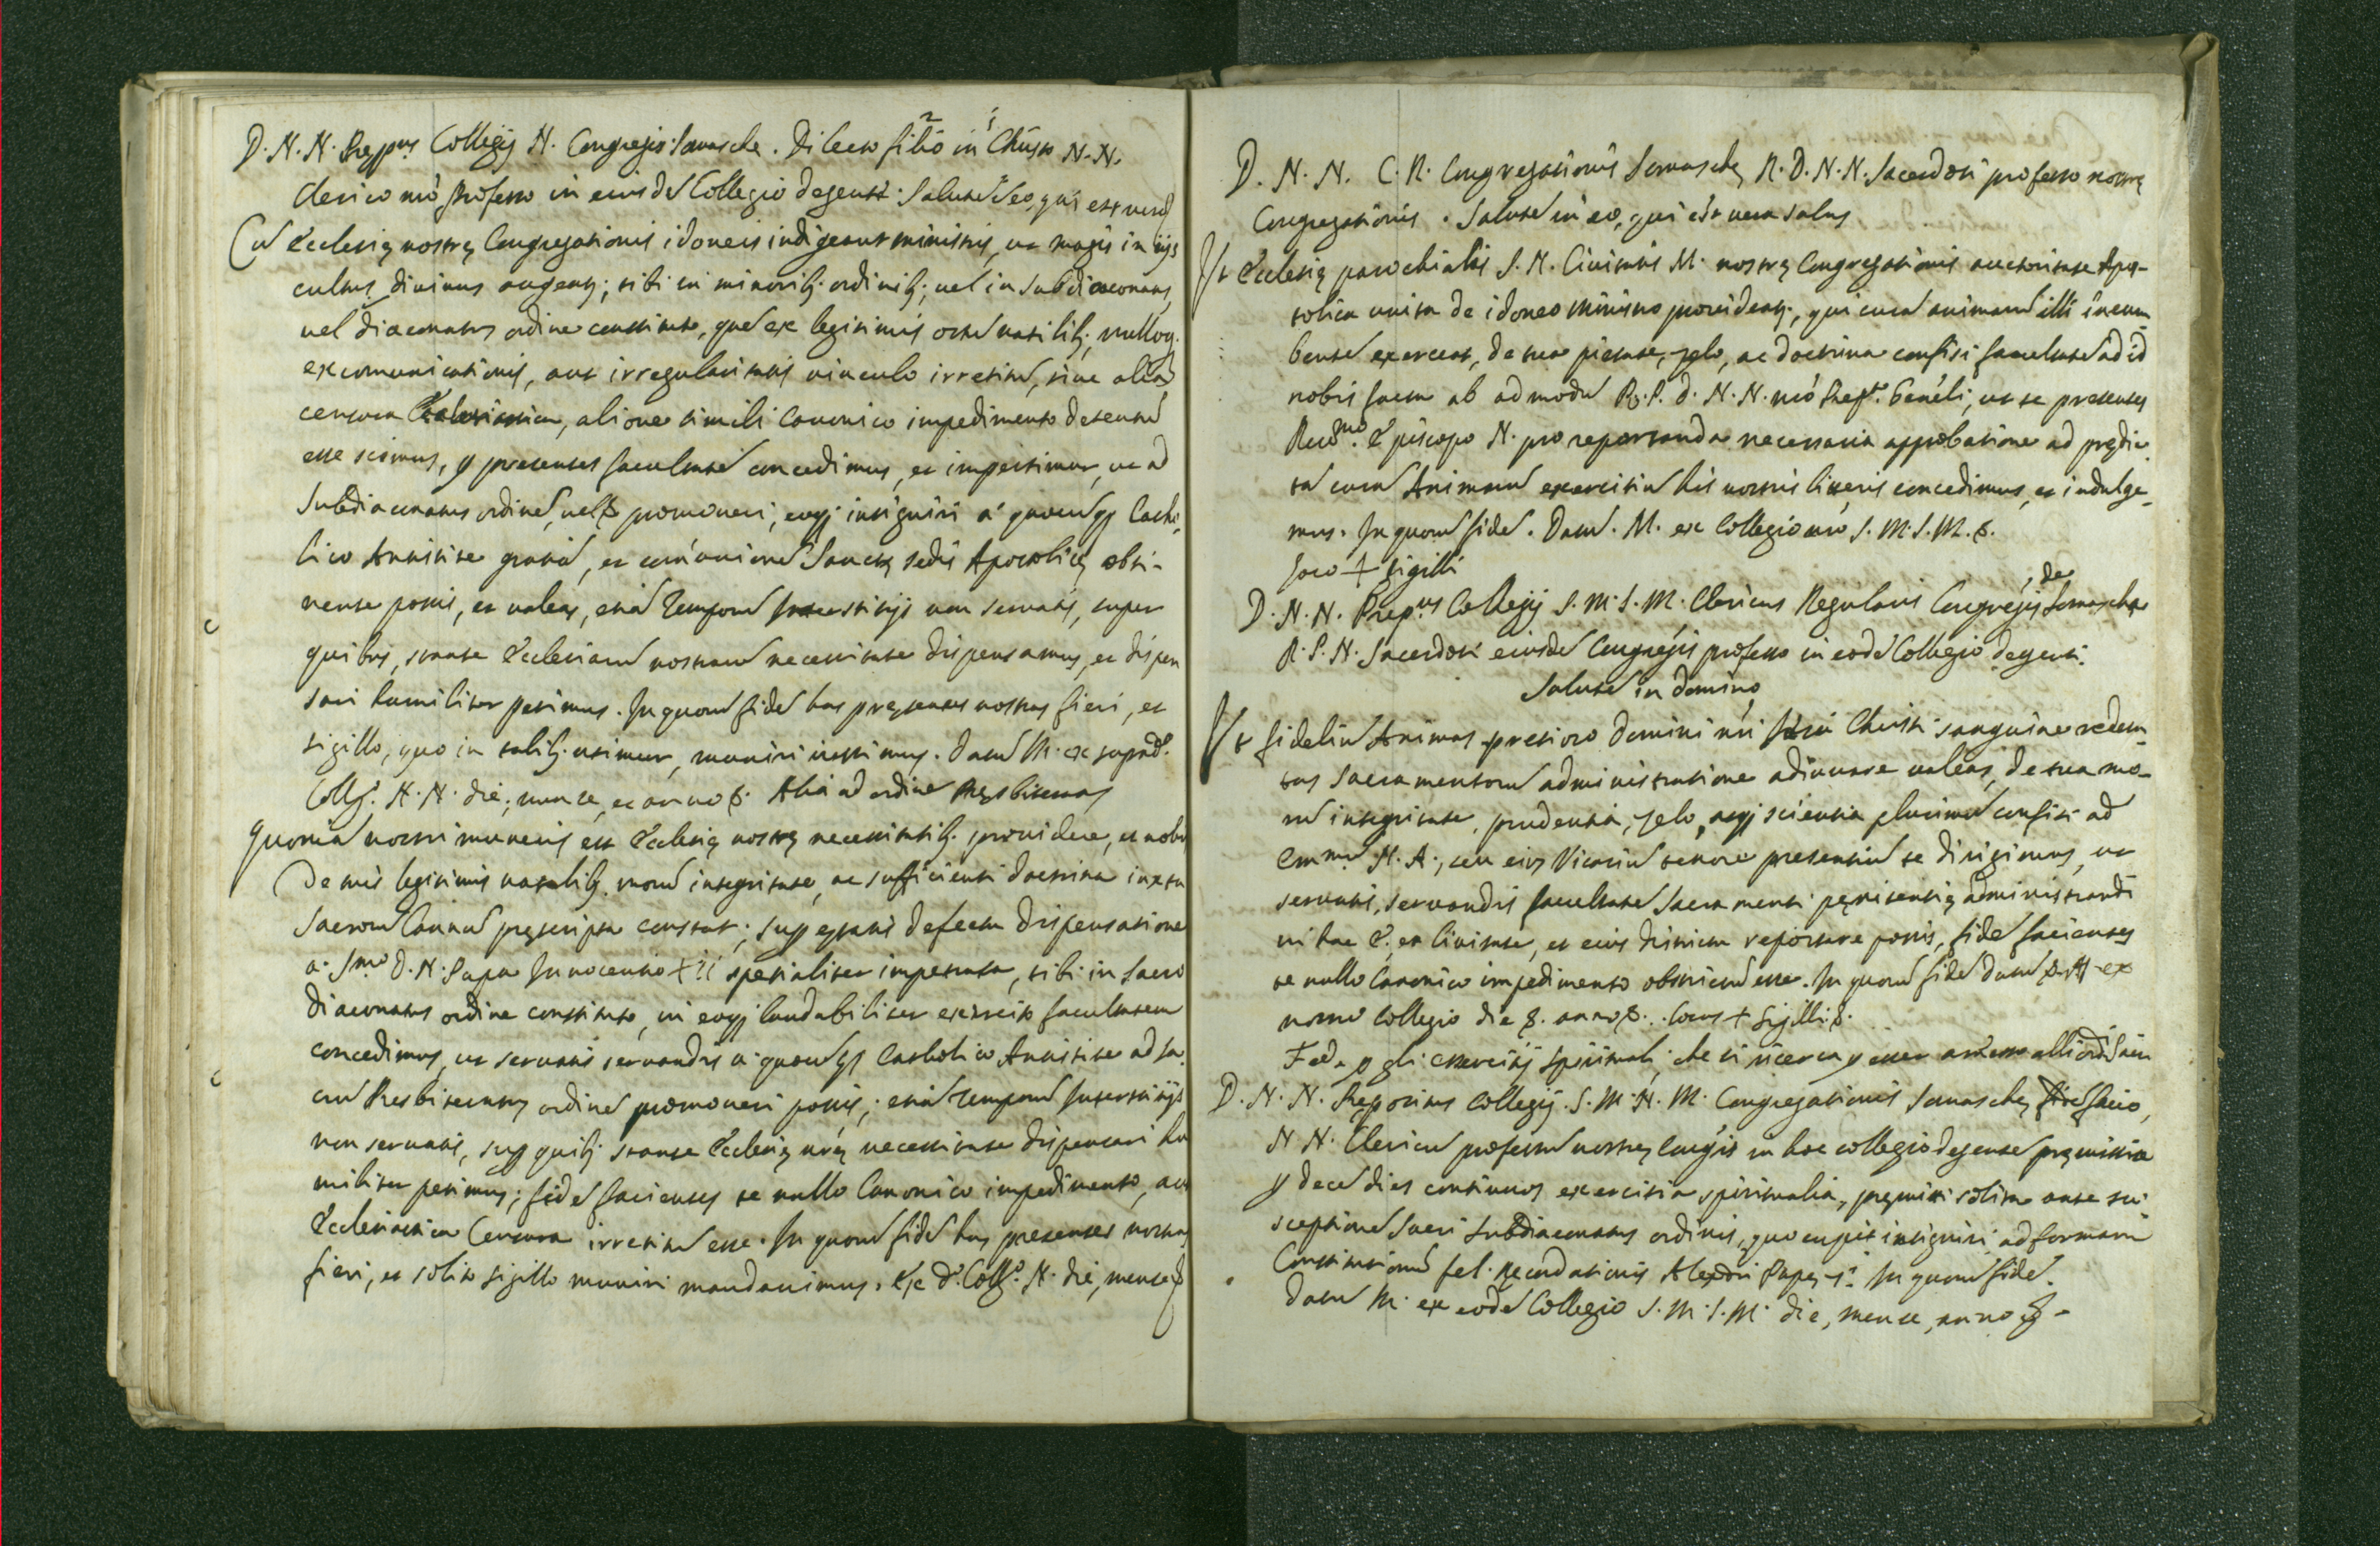 D. N. N. Prep.us Collegij N. Congregis Somasche. Dilecto filio in Christo N. N.
Clerico nrō Professo in eiusdē Collegio degenti. Salutē in eo, qui est vera
Cū Ecclesię nostrę Congregationis idoneis indigeant ministris, ut magis in ijs
cultus divinus augeatʒ; tibi in minoribʒ ordinibʒ, vel in subdiaconatus,
vel diaconatus ordine constituto, quē ex legitimis ortū natalibʒ, nulloqʒ
excomunicationis, aut irregularitatis vinculo irretitū, sive aliā
censura Ecclesiastica, aliove simili Canonico impedimento detentū
esse scimus, p presentes facultatē concedimus, et impertimur, ut ad
Subdiaconatus ordinē, vel & promoveri, eoqʒ insigniri á quocūqʒ Catho-
lico Antistite gratiā, et comunionē Sanctę sedis Apostolicę obti-
nente possis, et valeas, etiā temporū Interstitijs non servatis, super
quibus, stante Ecclesiarū nostrarū necessitate dispensamus, et dispen
sari humiliter petimus. In quorū fidē has pręsentes nostras fieri, et
sigillo, quo in talibʒ utimur, muniri iussimus. Datū M. ex suprad.o
Coll.o N. N. die, mense, et anno &. Alia ad ordinē Presbiteratus
Quoniā nostri muneris est Ecclesię nostrę necessitatibʒ providere, et nobis
de tuis legitimis natalibʒ morū integritate, ac sufficienti doctrina iuxta
Sacrorū Canonū pręscripta constat; supp ętatis defectu dispensatione
a S.mo D. N. Papa Innocentio XII specialiter impetrata, tibi in sacro
diaconatus ordine constituto, in eoqʒ laudabiliter exercito facultatem
concedimus, ut servatis servandis a quocūqʒ Catholico Antistite ad sa-
crū Presbiteratus ordinē promoveri possis; etiā temporū Interstitijs
non servatis, supp quibʒ stante Ecclesię nrę necessitate dispensari hu
militer petimus; fidē facientes te nullo Canonico impedimento, aut
Ecclesiastica Censura irretitū esse. In quorū fidē has presentes nostras
fieri, et solito sigillo muniri mandavimus. Ex d.o Coll.o N. die, mense &
D. N. N. C. R. Congregationis Somaschę R. D. N. N. Sacerdoti professo nostrę
Congregationis. Salutē in eo, qui est vera salus
Ut Ecclesię parochialis S. N. Civitatis M. nostrę Congregationis auctoritate Apos-
tolica unita de idoneo Ministro provideatʒ, qui curā animarū illi incum
bentē exerceat, de tua pietate, zelo, ac doctrina confisi facultate ad id
nobis facta ab admodū R. P. D. N. N. nrō Prep.to Genēli, ut te presentes
Rev.mo Episcopo N. pro reportanda necessaria approbatione ad prędic-
tā curā Animarū exercitiū his nostris litteris concedimus, et indulge-
mus. In quorū fidē. Datū. M. ex Collegio nrō S. M. S. M. &.
Loco + sigilli
D. N. N. Prep.us Collegij S. M. S. M. Clericus Regularis Congregis de Somascha
R. P. N. Sacerdoti eiusdē Congregis professo in eodē Collegio degenti.
Salutē in Domino
Ut fideliū Animas pretioso Domini nri Iesu Christi sanguine redem-
tas Sacramentorū administratione adiuvare valeas, de tua mo-
rū integritate, prudentia, zelo, atqʒ scientia plurimū confisi ad
Em.mū N. A., seu eius Vicariū tenore presentiū te dirigimus, ut
servatis, servandis facultatē Sacramenti pęnitentię administrandi
in hac &, et Civitate, et eius districtu reportare possis, fidē facientes
te nullo Canonico impedimento obstrictū esse. In quorū fidē datū ex
nostro Collegio die &. anno &. Locus + Sigilli. &.
Fed. p gli essercitij spirituali, che si ricerca p esser amesso alli ordi Sacri
D. N. N. Prepositus Collegij S. M. N. M. Congregationis Somaschę fidē facio,
N N. Clericū professū nostrę Congis in hoc collegio degentē pręmissa
p decē dies continuos exercitia spiritualia, pręmitti solita ante su-
sceptionē Sacri Subdiaconatus ordinis, quo cupit insigniri ad formam
Constitutionū fel. Recordationis Alexdri Papę 7.i In quorū fidē.
Datū M. ex eodē Collegio S. M. S. M. die, mense, anno &-